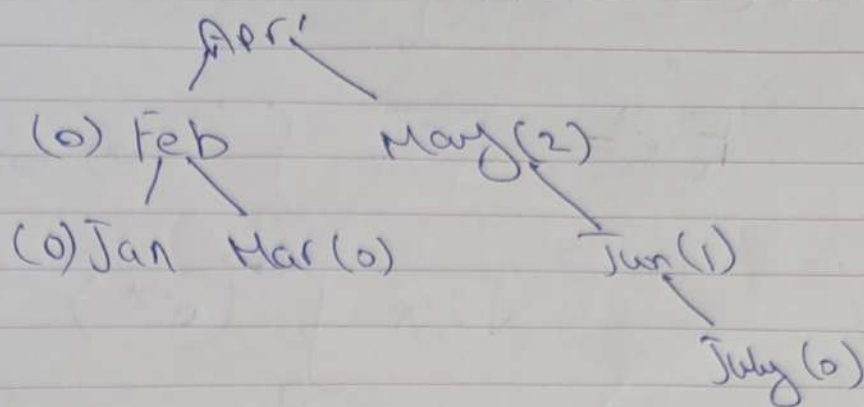 Apri
(0) Feb May (2)
(0) Jan Mar (0) Jun (1)
July (0)